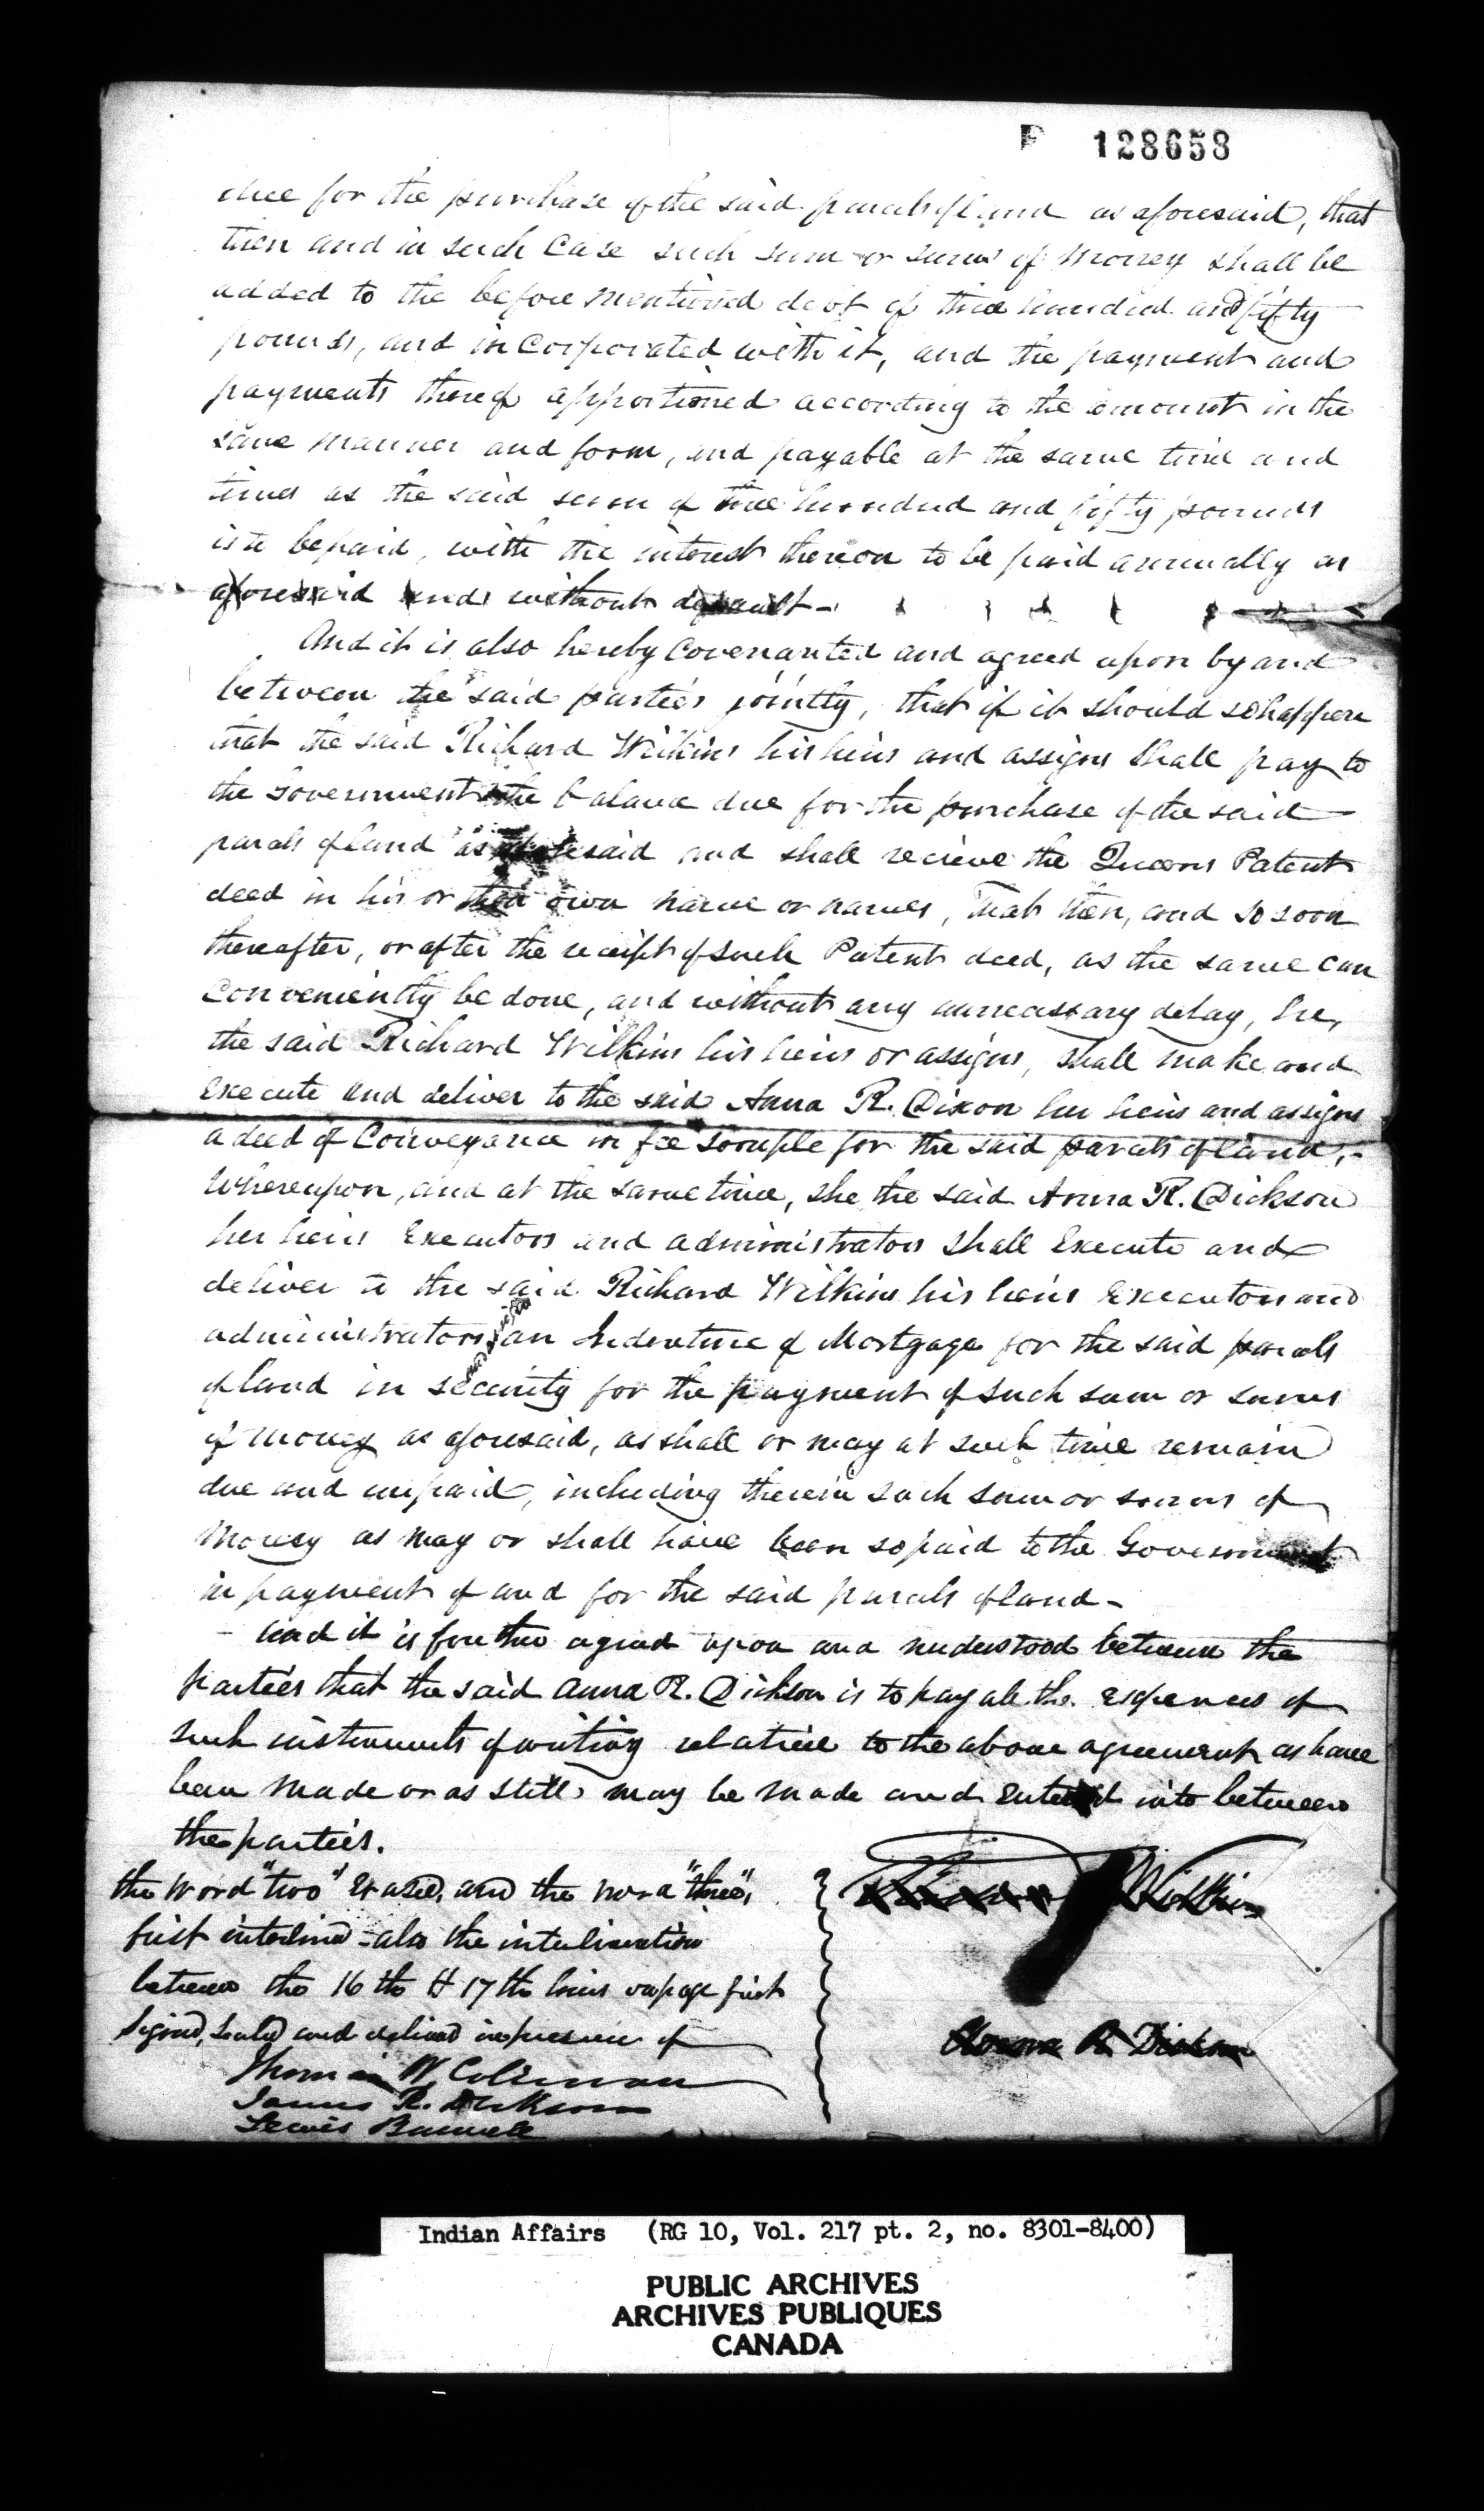 128658
due for the purchase of the said parcels of land as aforesaid, that
then and in such case such sum or sums of money shall be
added to the before mentioned debt of three hundred and fifty
pounds, and incorporated with it, and the payment and
payments thereof apportioned according to the amount in the
same manner and form, and payable at the same time and
times as the said sum of three hundred and fifty pounds
is to be paid, with the interest thereon to be paid annually as
aforesaid and without default -
And it is also hereby covenanted and agreed upon by and
between the said parties jointly, that if it should so happen
that the said Richard Wilkins his heirs and assigns shall pay to
the Government the balance due for the purchase of the said
parcels of land as aforesaid and shall recieve the Queens Patent
deed in his or their own name or names, That then, and so soon
thereafter, or after the receipt of such Patent deed, as the same can
conveniently be done, and without any unnecessary delay, he,
the said Richard Wilkins his heirs or assigns, shall make and
execute and deliver to the said Anna R. Dixon her heirs and assigns
a deed of Conveyance in fee simple for the said parcels of land,-
Whereupon, and at the same time, she the said Anna R. Dickson
her heirs Executors and administrators shall Execute and
deliver to the said Richard Wilkins his heirs Executors and
administrators an Indenture of Mortgage for the said parcels
of land in security for the payment of such sum or sums
of money as aforesaid, as shall or may at such time remain
due and unpaid, including therein such sum or sums of
Money as may or shall have been so paid to the Government
in payment of and for the said parcels of land -
- And it is further agreed upon and understood between the
parties that the said Anna R. Dickson is to pay all the expences of
such instruments of writing relative to the above agreement as have
been made or as still may be made and entered into between
the parties.
the word "two" erased, and the word "three",
first interlined - also the interlineation
between the 16th & 17th lines on page first
Signed, Sealed and delivered in presence of
Thomas W. Coleman
James R. Dickson
Lewis
Wilkins
Anna R. Dickson
Indian Affairs (RG 10, Vol. 217 pt. 2, no. 8301-8400)
PUBLIC ARCHIVES
ARCHIVES PUBLIQUES
CANADA